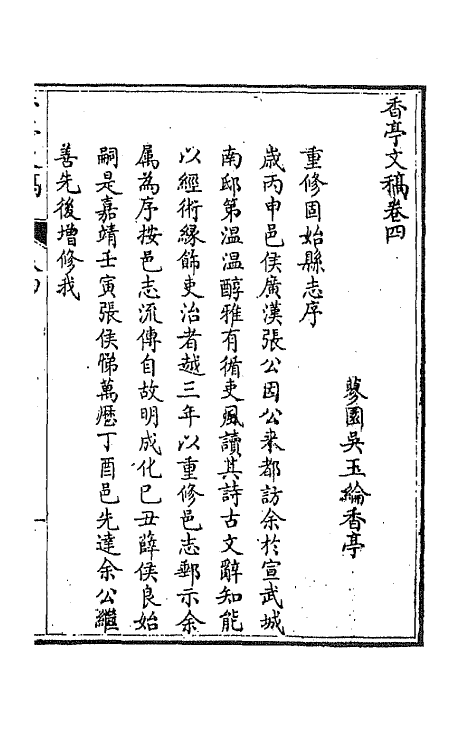 香亭文稿卷四
蓼園吳玉綸香亭
重修固始縣志序
歲丙申邑侯廣漢張公因公來都訪余於宣武城
南邸第溫溫醇雅有循吏風讀其詩古文辭知能
以經術緣飾吏治者越三年以重修邑志郵示余
屬為序按邑志流傳自故明成化己丑薛侯良始
嗣是嘉靖壬寅張侯悌萬歷丁酉邑先達余公繼
善先後增修我